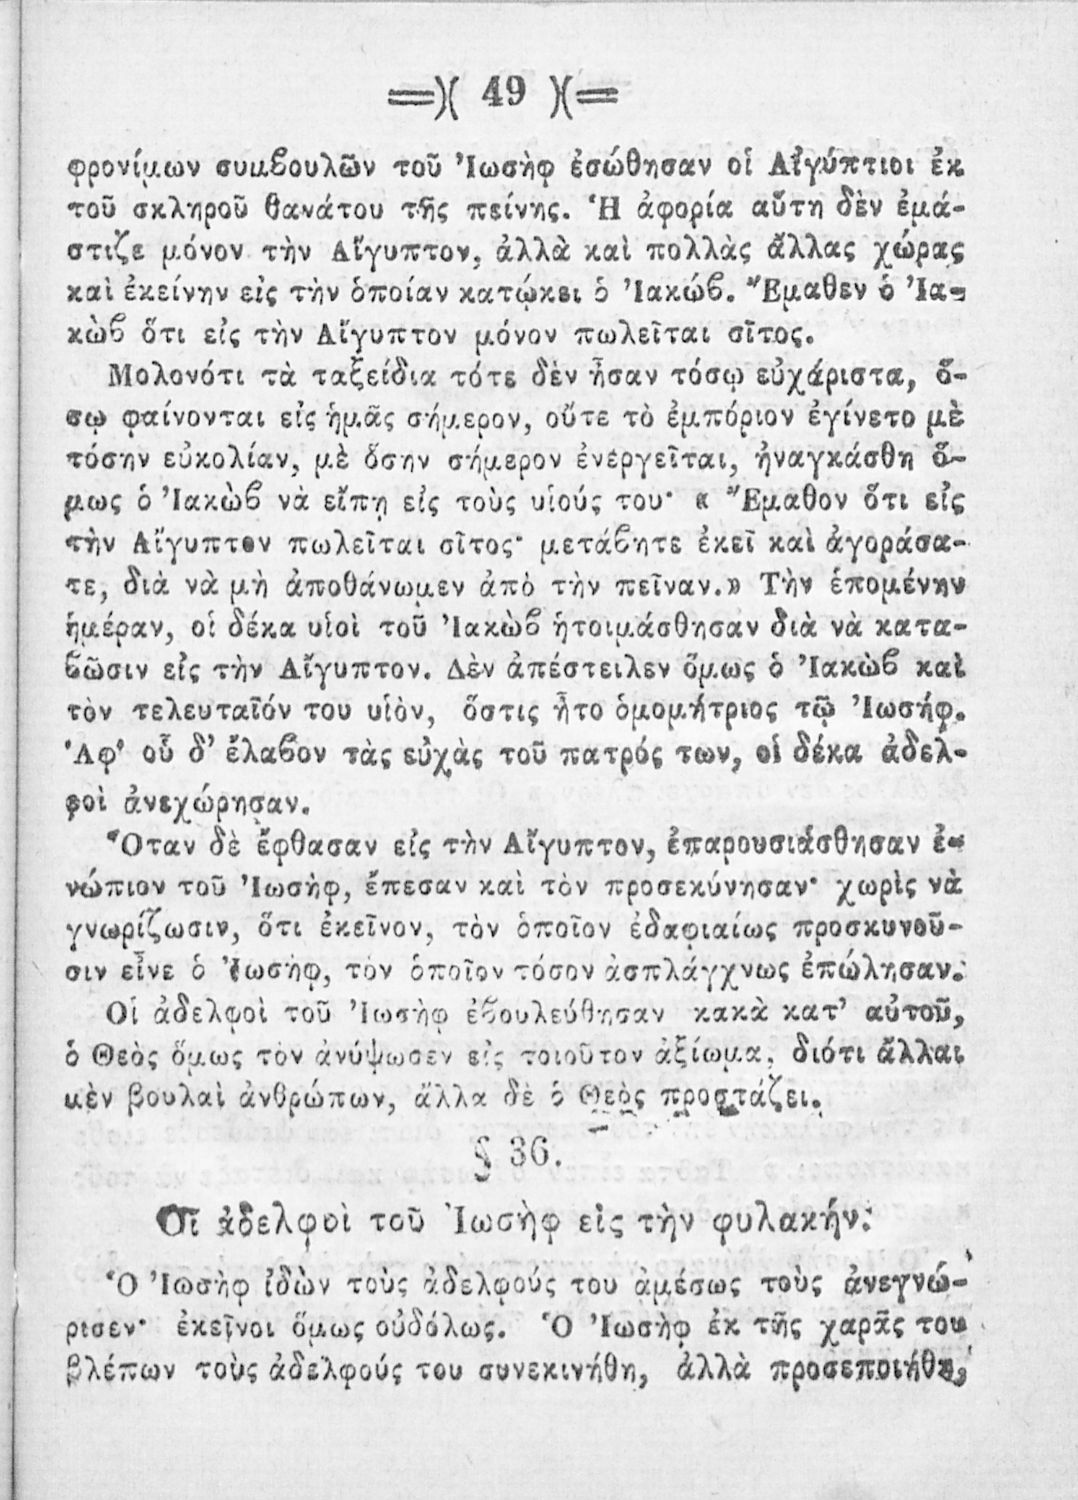 =)( 49 )(=
φρονίμων συμϐουλῶν τοῦ Ἰωσὴφ ἐσώθησαν οἱ Αἰγύπτιοι ἐκ
τοῦ σκληροῦ θανάτου τῆς πείνης. Ἡ ἀφορία αὕτη δὲν ἐμά-
στιζε μόνον τὴν Αἴγυπτον, ἀλλὰ καὶ πολλὰς ἄλλας χώρας
καὶ ἐκείνην εἰς τὴν ὁποίαν κατῴκει ὁ Ἰακώϐ. Ἔμαθεν ὁ Ἰα-
κὼϐ ὅτι εἰς τὴν Αἴγυπτον μόνον πωλεῖται σῖτος.
Μολονότι τὰ ταξείδια τότε δὲν ἦσαν τόσῳ εὐχάριστα, ὅ-
σῳ φαίνονται εἰς ἡμᾶς σήμερον, οὔτε τὸ ἐμπόριον ἐγίνετο μὲ
τόσην εὐκολίαν, μὲ ὅσην σήμερον ἐνεργεῖται, ἠναγκάσθη ὅ-
μως ὁ Ἰακὼϐ νὰ εἴπῃ εἰς τοὺς υἱούς του· « Ἔμαθον ὅτι εἰς
τὴν Αἴγυπτον πωλεῖται σῖτος· μετάϐητε ἐκεῖ καὶ ἀγοράσα-
τε, διὰ νὰ μὴ ἀποθάνωμεν ἀπὸ τὴν πεῖναν.» Τὴν ἑπομένην
ἡμέραν, οἱ δέκα υἱοὶ τοῦ Ἰακὼϐ ἡτοιμάσθησαν διὰ νὰ κατα-
ϐῶσιν εἰς τὴν Αἴγυπτον. Δὲν ἀπέστειλεν ὅμως ὁ Ἰακὼϐ καὶ
τὸν τελευταῖόν του υἱὸν, ὅστις ἦτο ὁμομήτριος τῷ Ἰωσήφ.
Ἀφ' οὗ δ' ἔλαϐον τὰς εὐχὰς τοῦ πατρός των, οἱ δέκα ἀδελ-
φοὶ ἀνεχώρησαν.
Ὅταν δὲ ἔφθασαν εἰς τὴν Αἴγυπτον, ἐπαρουσιάσθησαν ἐ-
νώπιον τοῦ Ἰωσὴφ, ἔπεσαν καὶ τὸν προσεκύνησαν· χωρὶς νὰ
γνωρίζωσιν, ὅτι ἐκεῖνον, τὸν ὁποῖον ἐδαφιαίως προσκυνοῦ-
σιν εἶνε ὁ Ἰωσὴφ, τὸν ὁποῖον τόσον ἀσπλάγχνως ἐπώλησαν.
Οἱ ἀδελφοὶ τοῦ Ἰωσὴφ ἐϐουλεύθησαν κακὰ κατ' αὐτοῦ,
ὁ Θεὸς ὅμως τὸν ἀνύψωσεν εἰς τοιοῦτον ἀξίωμα, διότι ἄλλαι
μὲν βουλαὶ ἀνθρώπων, ἄλλα δὲ ὁ Θεὸς προστάζει.
§ 36.
Οἱ ἀδελφοὶ τοῦ Ἰωσὴφ εἰς τὴν φυλακήν.
Ὁ Ἰωσὴφ ἰδὼν τοὺς ἀδελφούς του ἀμέσως τοὺς ἀνεγνώ-
ρισεν· ἐκεῖνοι ὅμως οὐδόλως. Ὁ Ἰωσὴφ ἐκ τῆς χαρᾶς του
βλέπων τοὺς ἀδελφούς του συνεκινήθη, ἀλλὰ προσεποιήθη,